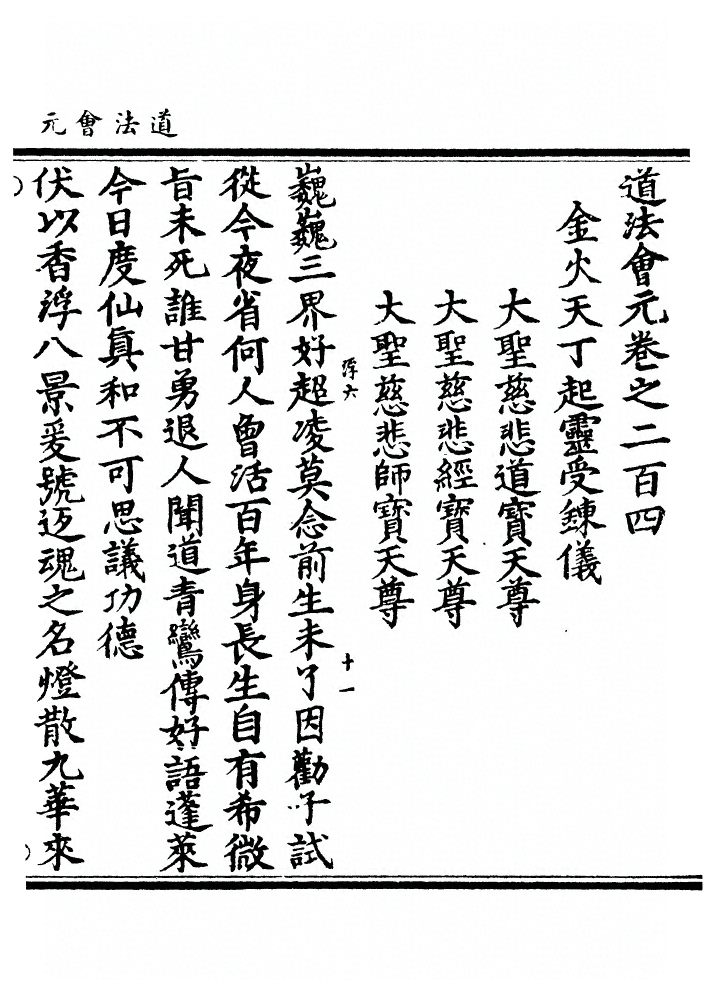 道法會元
道法會元卷之二百四
金火天丁起靈受鍊儀
大聖慈悲道寶天尊
大聖慈悲經寶天尊
大聖慈悲師寶天尊
浮六
十一
巍巍三界好超凌莫念前生未了因勸子試
從今夜省何人曾活百年身長生自有希微
旨未死誰甘勇退人聞道青鸞傳好語蓬萊
今日度仙真和不可思議功德
伏以香浮八景爰號返魂之名燈散九華來